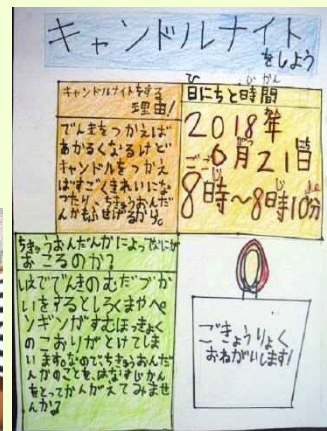 キャンドルナイト
をしよう
キャンドルナイトをする
理由!
でんきをつかえば
あかるくなるけど
キャンドルをつかえ
ばすごくきれいにな
ったり、ちきゅうおんだ
んかもふせげるから。
ひ じかん
日にちと時間
2018年
ごご6月21日
8時～8時10分
ちきゅうおんだんかによってなにが
おこるのか?
いえででんきのむだづか
いをするとしろくまやペ
ンギンがすむほっきょく
のこおりがとけてしま
います。なのでちきゅうおんだ
んかのことを、はなすじかん
をとってかんがえてみませ
んか?
ごきょうりょく
おねがいします!